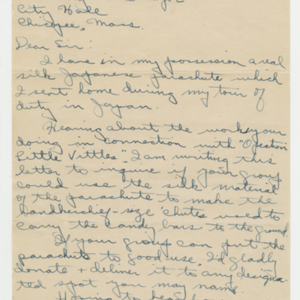 City Hall
Chicopee, Mass.
Dear Sir:
I have in my possession a real
silk Japanese parachute which
I sent home during my tour of
duty in Japan.
Hearing about the work your
doing in connection with "Operation
Little Vittles" I am writing this
letter to inquire if your group
could use the silk material
of the parachute to make the
handkerchief-size 'chutes used to
carry the candy bars to the ground.
If your group can put the
parachute to good use, I'd gladly
donate + deliver it to any designa
ted spot you may name.
Hoping to hear